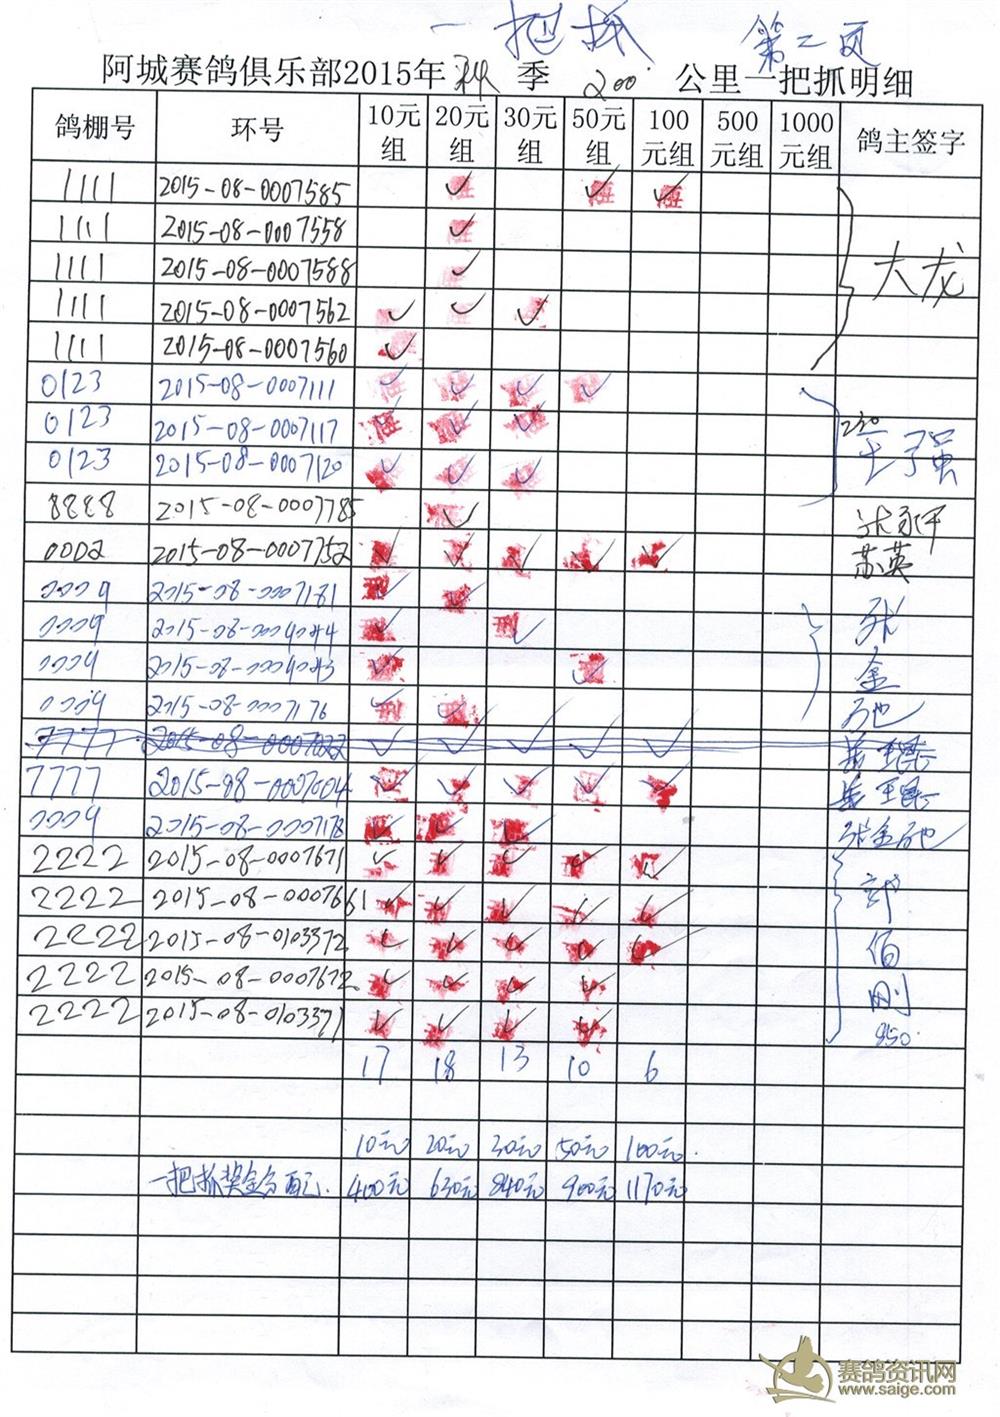 一把抓 第二页
阿城赛鸽俱乐部2015年秋季200公里一把抓明细
鸽棚号 环号 10元组 20元组 30元组 50元组 100元组 500元组 1000元组 鸽主签字
1111 2015-08-0007585 ✓ ✓ ✓
1111 2015-08-0007558 ✓
1111 2015-08-0007588 ✓ 大龙
1111 2015-08-0007562 ✓ ✓ ✓
1111 2015-08-0007560 ✓
0123 2015-08-0007111 ✓ ✓ ✓ ✓
0123 2015-08-0007117 ✓ ✓ ✓ 230
0123 2015-08-0007120 ✓ ✓ ✓ 王子强
8888 2015-08-0007785 ✓ 张永平
0002 2015-08-0007752 ✓ ✓ ✓ ✓ ✓ 苏英
0009 2015-08-0007181 ✓ ✓
0009 2015-08-0009044 ✓ ✓ 张
0009 2015-08-0009043 ✓ ✓ 金
0009 2015-08-0007176 ✓ ✓ 弛
7777 2015-08-0007022 ✓ ✓ ✓ ✓ ✓
7777 2015-08-0007004 ✓ ✓ ✓ ✓ ✓
0009 2015-08-0007178 ✓ ✓ ✓ 张金弛
2222 2015-08-0007671 ✓ ✓ ✓ ✓ ✓
2222 2015-08-0007661 ✓ ✓ ✓ ✓ ✓
2222 2015-08-0103372 ✓ ✓ ✓ ✓ ✓ 伯
2222 2015-08-0007672 ✓ ✓ ✓ ✓ 刚
2222 2015-08-0103371 ✓ ✓ ✓ ✓ 950
17 18 13 10 6
10元 20元 30元 50元 100元
一把抓奖金分配 400元 630元 840元 900元 1170元
赛鸽资讯网
www.saige.com